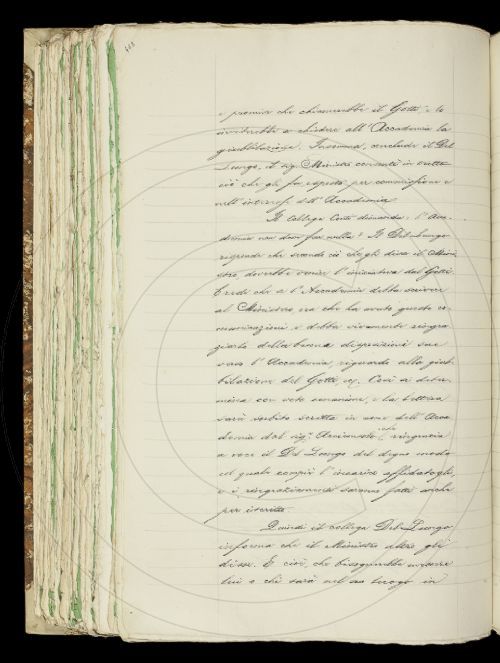 e promise che chiamerebbe il Gotti e lo
inviterebbe a chiedere all'Accademia la
giubbilazione. Insomma, conclude il Del
Lungo, il sig. Ministro consentì in tutto
ciò che gli fu esposto per commissione e
nell'interesse dell'Accademia.
Il Collega Conti domanda: l'Acca-
demia non deve far nulla? Il Del Lungo
risponde che secondo ciò che gli disse il Mini
stro dovrebbe venire l'iniziativa dal Gotti.
Crede che a l'Accademia debba scrivere
al Ministro ora che ha avuto queste co-
municazioni e debba vivamente ringra-
ziarlo della buona disposizione sua
verso l'Accademia, riguardo alla giub-
bilazione del Gotti, ec. Così si deter-
mina con voto unanime, e la lettera
sarà subito scritta in nome dell'Acca-
demia dal sig. Arciconsolo che ringrazia
a voce il Del Lungo del degno modo
col quale compiè l'incarico affidatogli,
e i ringraziamenti saranno fatti anche
per iscritto.
Quindi il collega Del Lungo
informa che il Ministro altro gli
disse. E cioè, che bisognerebbe
lui e chi sarà nel suo luogo in